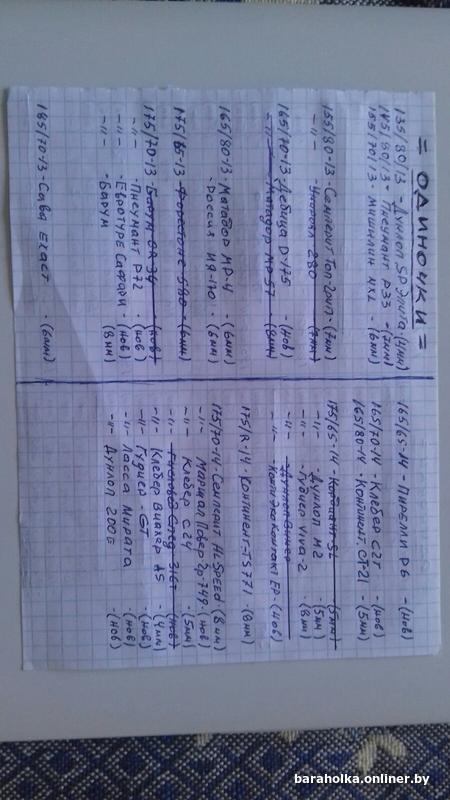 = ОДИНОЧКИ =
135/80/13 - Данлоп SP Элита (4мм)
145/80/13 - Пнеумант P33 - (7мм)
155/70/13 - Мишилин MXL - (6мм)
155/80-13 - Семперит Топ Грип - (7мм)
-"- - Унироял 280 - (7мм)
165/70-13 - Дебица D-175 - (Нов)
-"- - Матадор МР-57 - (8мм)
165/80-13 - Матадор МР-4 - (6мм)
- Россия ИЯ-170 - (8мм)
175/65-13 - 590 - (6мм)
175/70-13 - Барум OR 34 - (Нов)
-"- - Пнеумант P72 - (Нов)
-"- - Евротуре Сафари - (Нов)
-"- - Барум - (8мм)
185/70-13 - Сава Exact - (6мм)
165/65-14 - Пирелли P6 - (Нов)
165/70-14 - Клебер C2T - (Нов)
165/80-14 - Континент. CT-21 - (5мм)
175/65-14 - Кордиант SL (5мм)
-"- - Данлоп M2 - (5мм)
-"- - Гудиер Viva-2 - (8мм)
-"-
-"- - Конти Эко Контакт EP - (Нов)
175/R-14 - Континент-TS771 - (8мм)
175/70-14 - Семпеаит Hi-SPEED (8мм)
-"- - Маршал Повер Гр-749 - (Нов)
-"- - Клебер C24 - (5мм)
-"- - 316T - (Нов)
-"- - Клебер Виахер AS - (4мм)
-"- - Гудиер - GT - (Нов)
-"- - Ласса Мирата - (Нов)
-"- - Дунлоп - (Нов)
baraholka.onliner.by